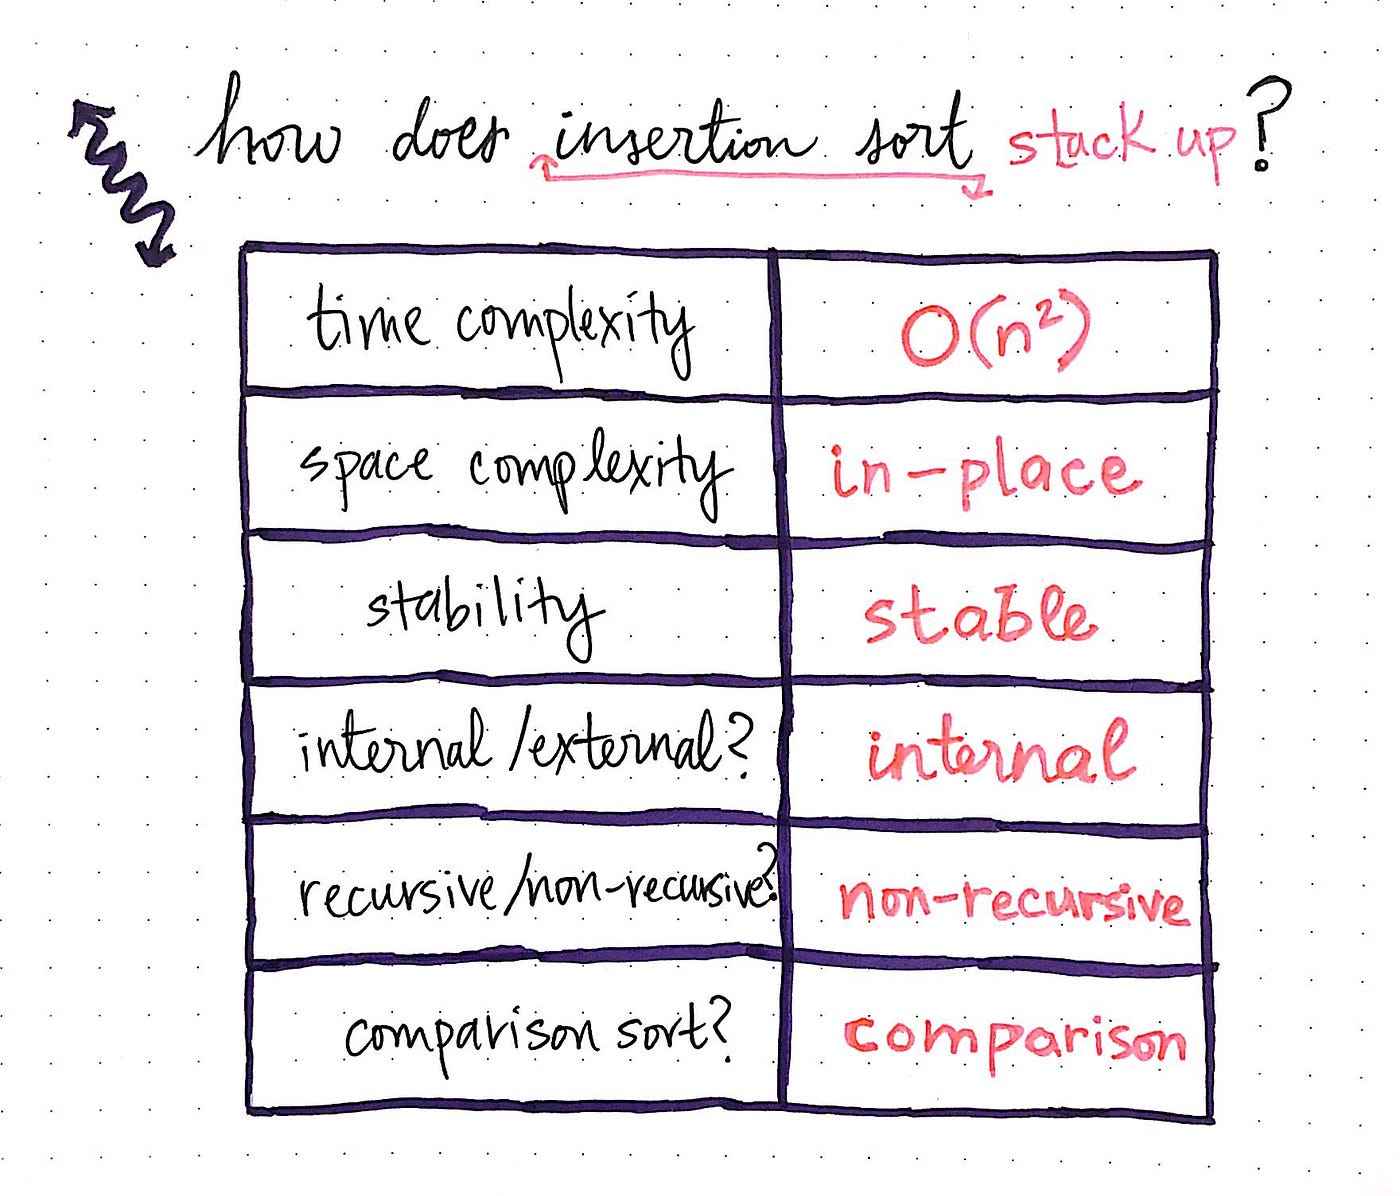 how does insertion sort stack up?
time complexity O(n²)
space complexity in-place
stability stable
internal/external? internal
recursive/non-recursive? non-recursive
comparison sort? comparison